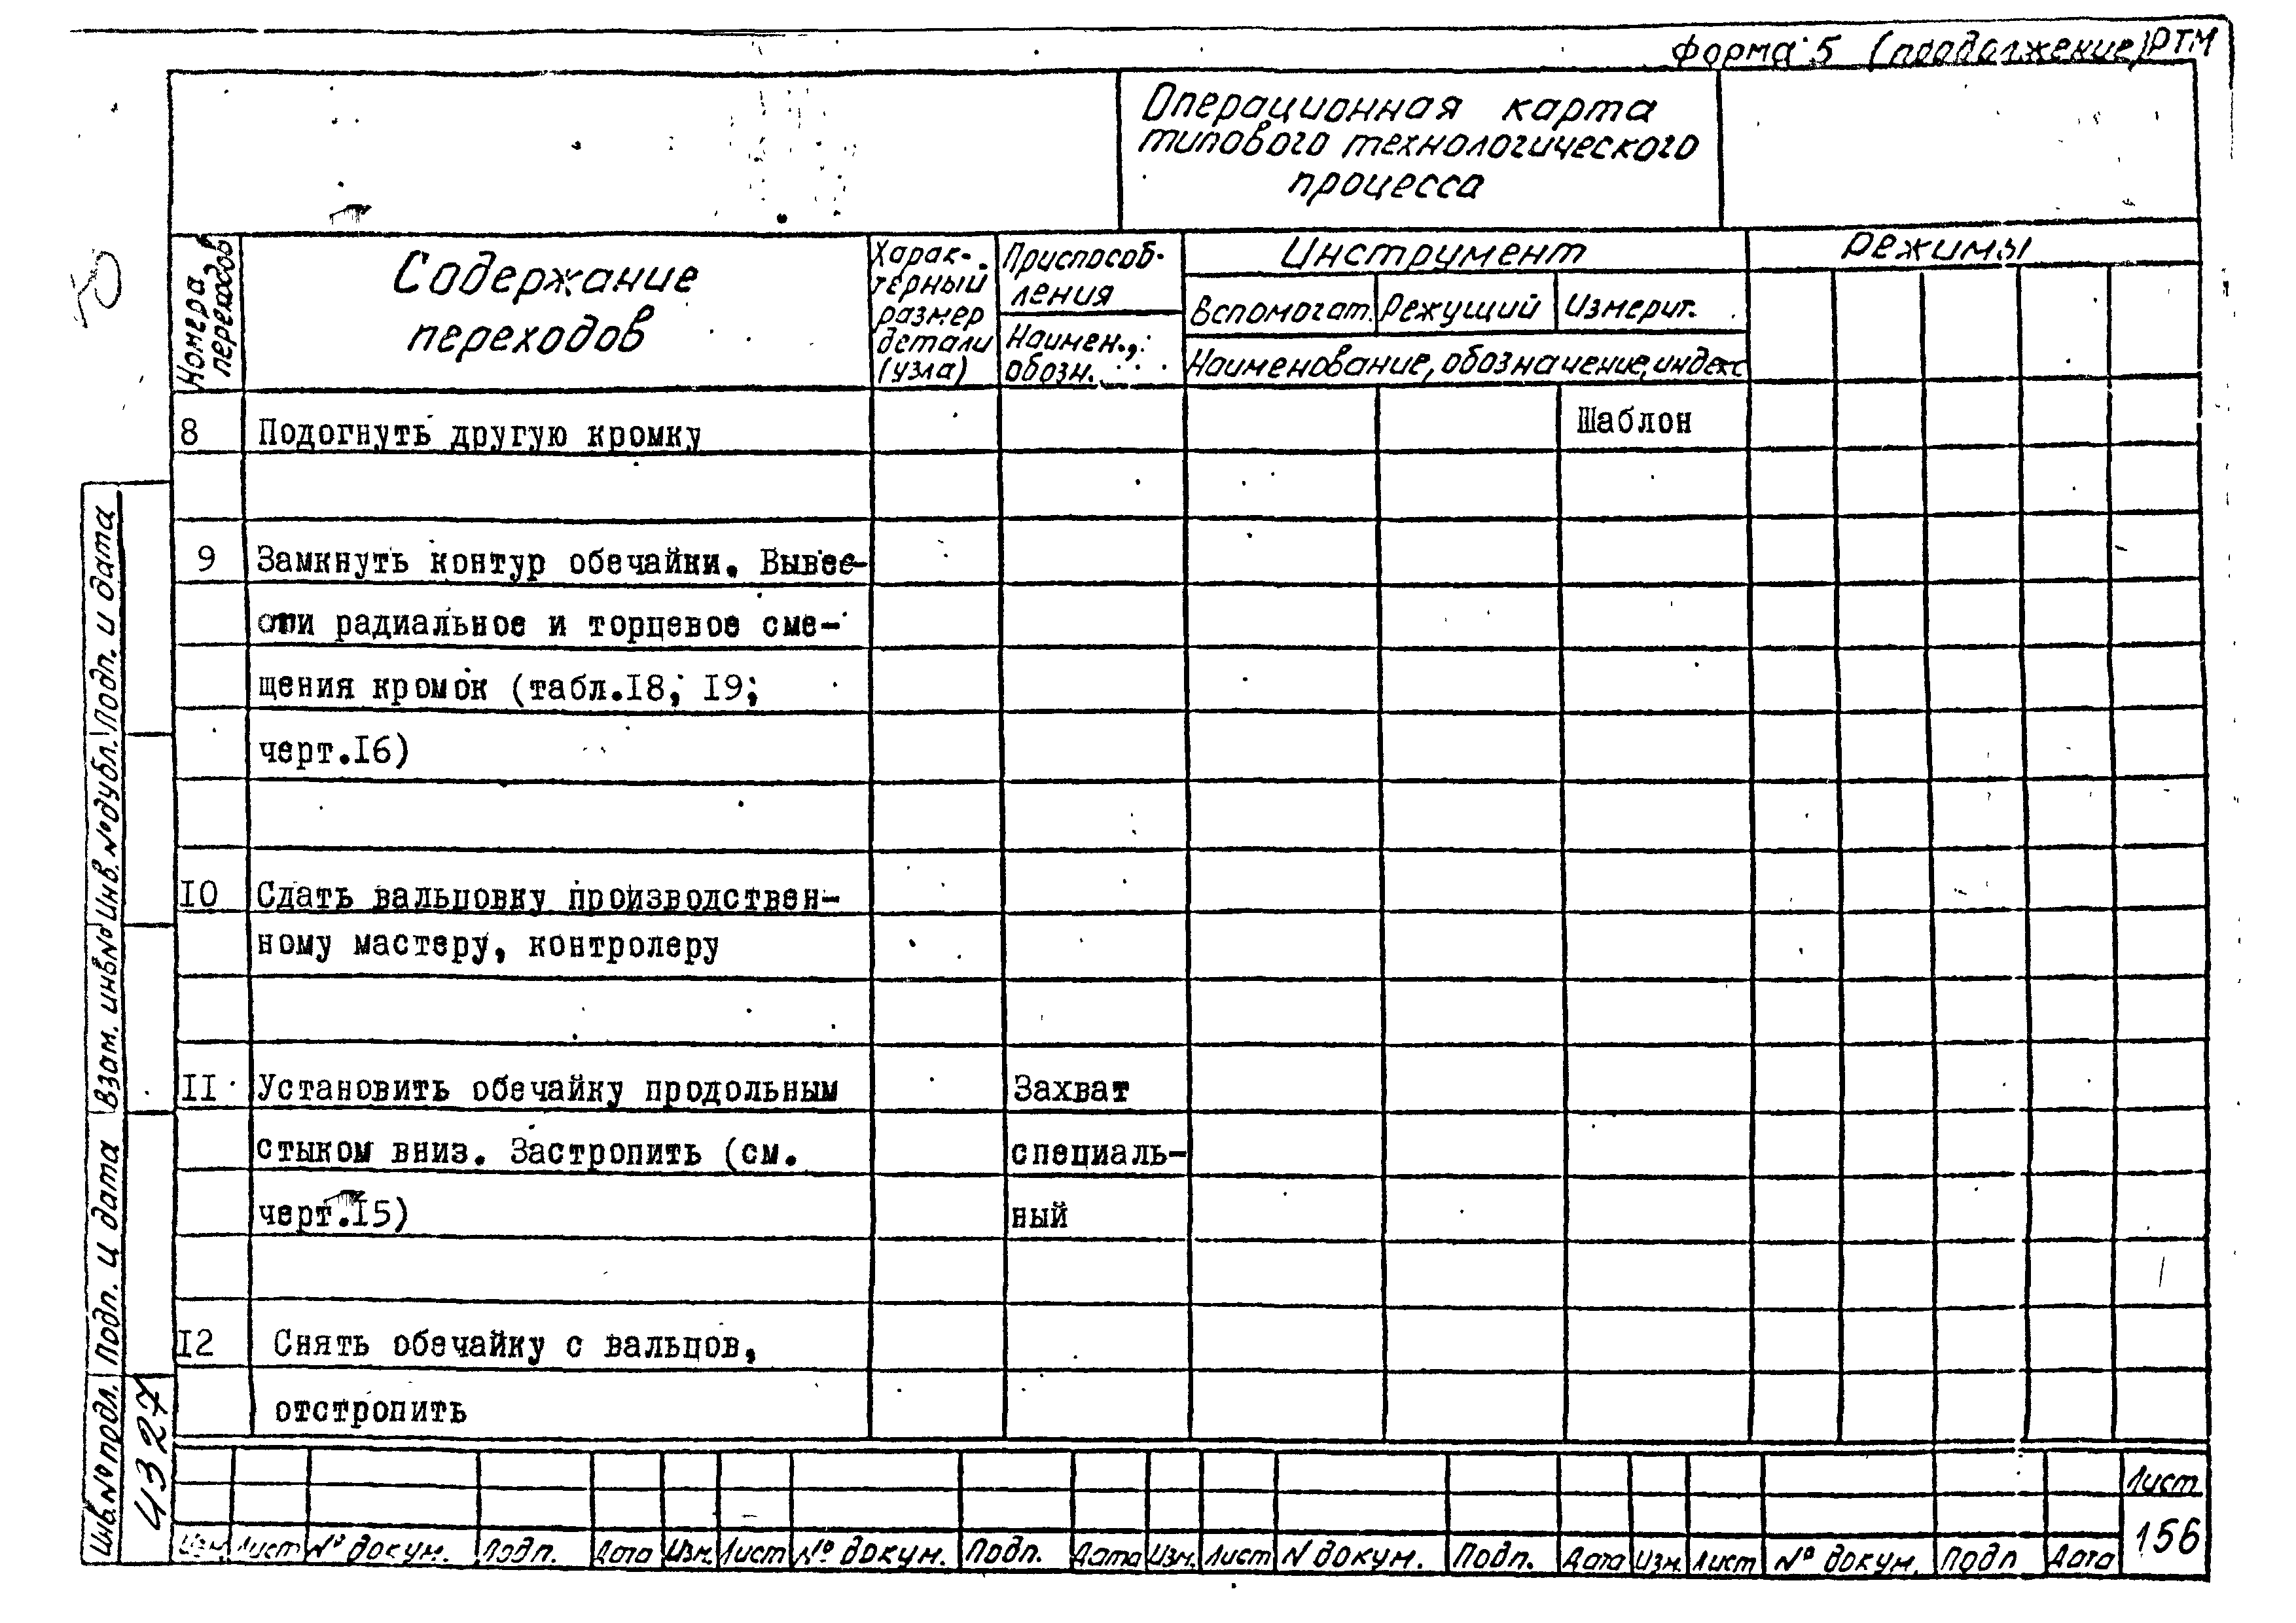 Форма 5 (продолжение) РТМ
Операционная карта
типового технологического
процесса
Номера
переходов
Содержание
переходов
Харак-
терный
размер
детали
(узла)
Приспособ-
ления
Наимен.,
обозн.
Инструмент
Вспомогат. Режущий Измерит.
Наименование, обозначение, индекс
Режимы
8 Подогнуть другую кромку Шаблон
9 Замкнуть контур обечайки. Вывес-
сти радиальное и торцевое сме-
щения кромок (табл.18; 19;
черт.16)
10 Сдать вальцовку производствен-
ному мастеру, контролеру
11 Установить обечайку продольным Захват
стыком вниз. Застропить (см. специаль-
черт.15) ный
12 Снять обечайку с вальцов,
отстропить
Подп. и дата
Инв.№дубл.
Взам. инв№
Подп. и дата
Инв.№подл.
4327
Изм. Лист № докум. Подп. Дата Изм. Лист № докум. Подп. Дата Изм. Лист N докум. Подп. Дата Изм. Лист № докум. Подп Дата
Лист
156